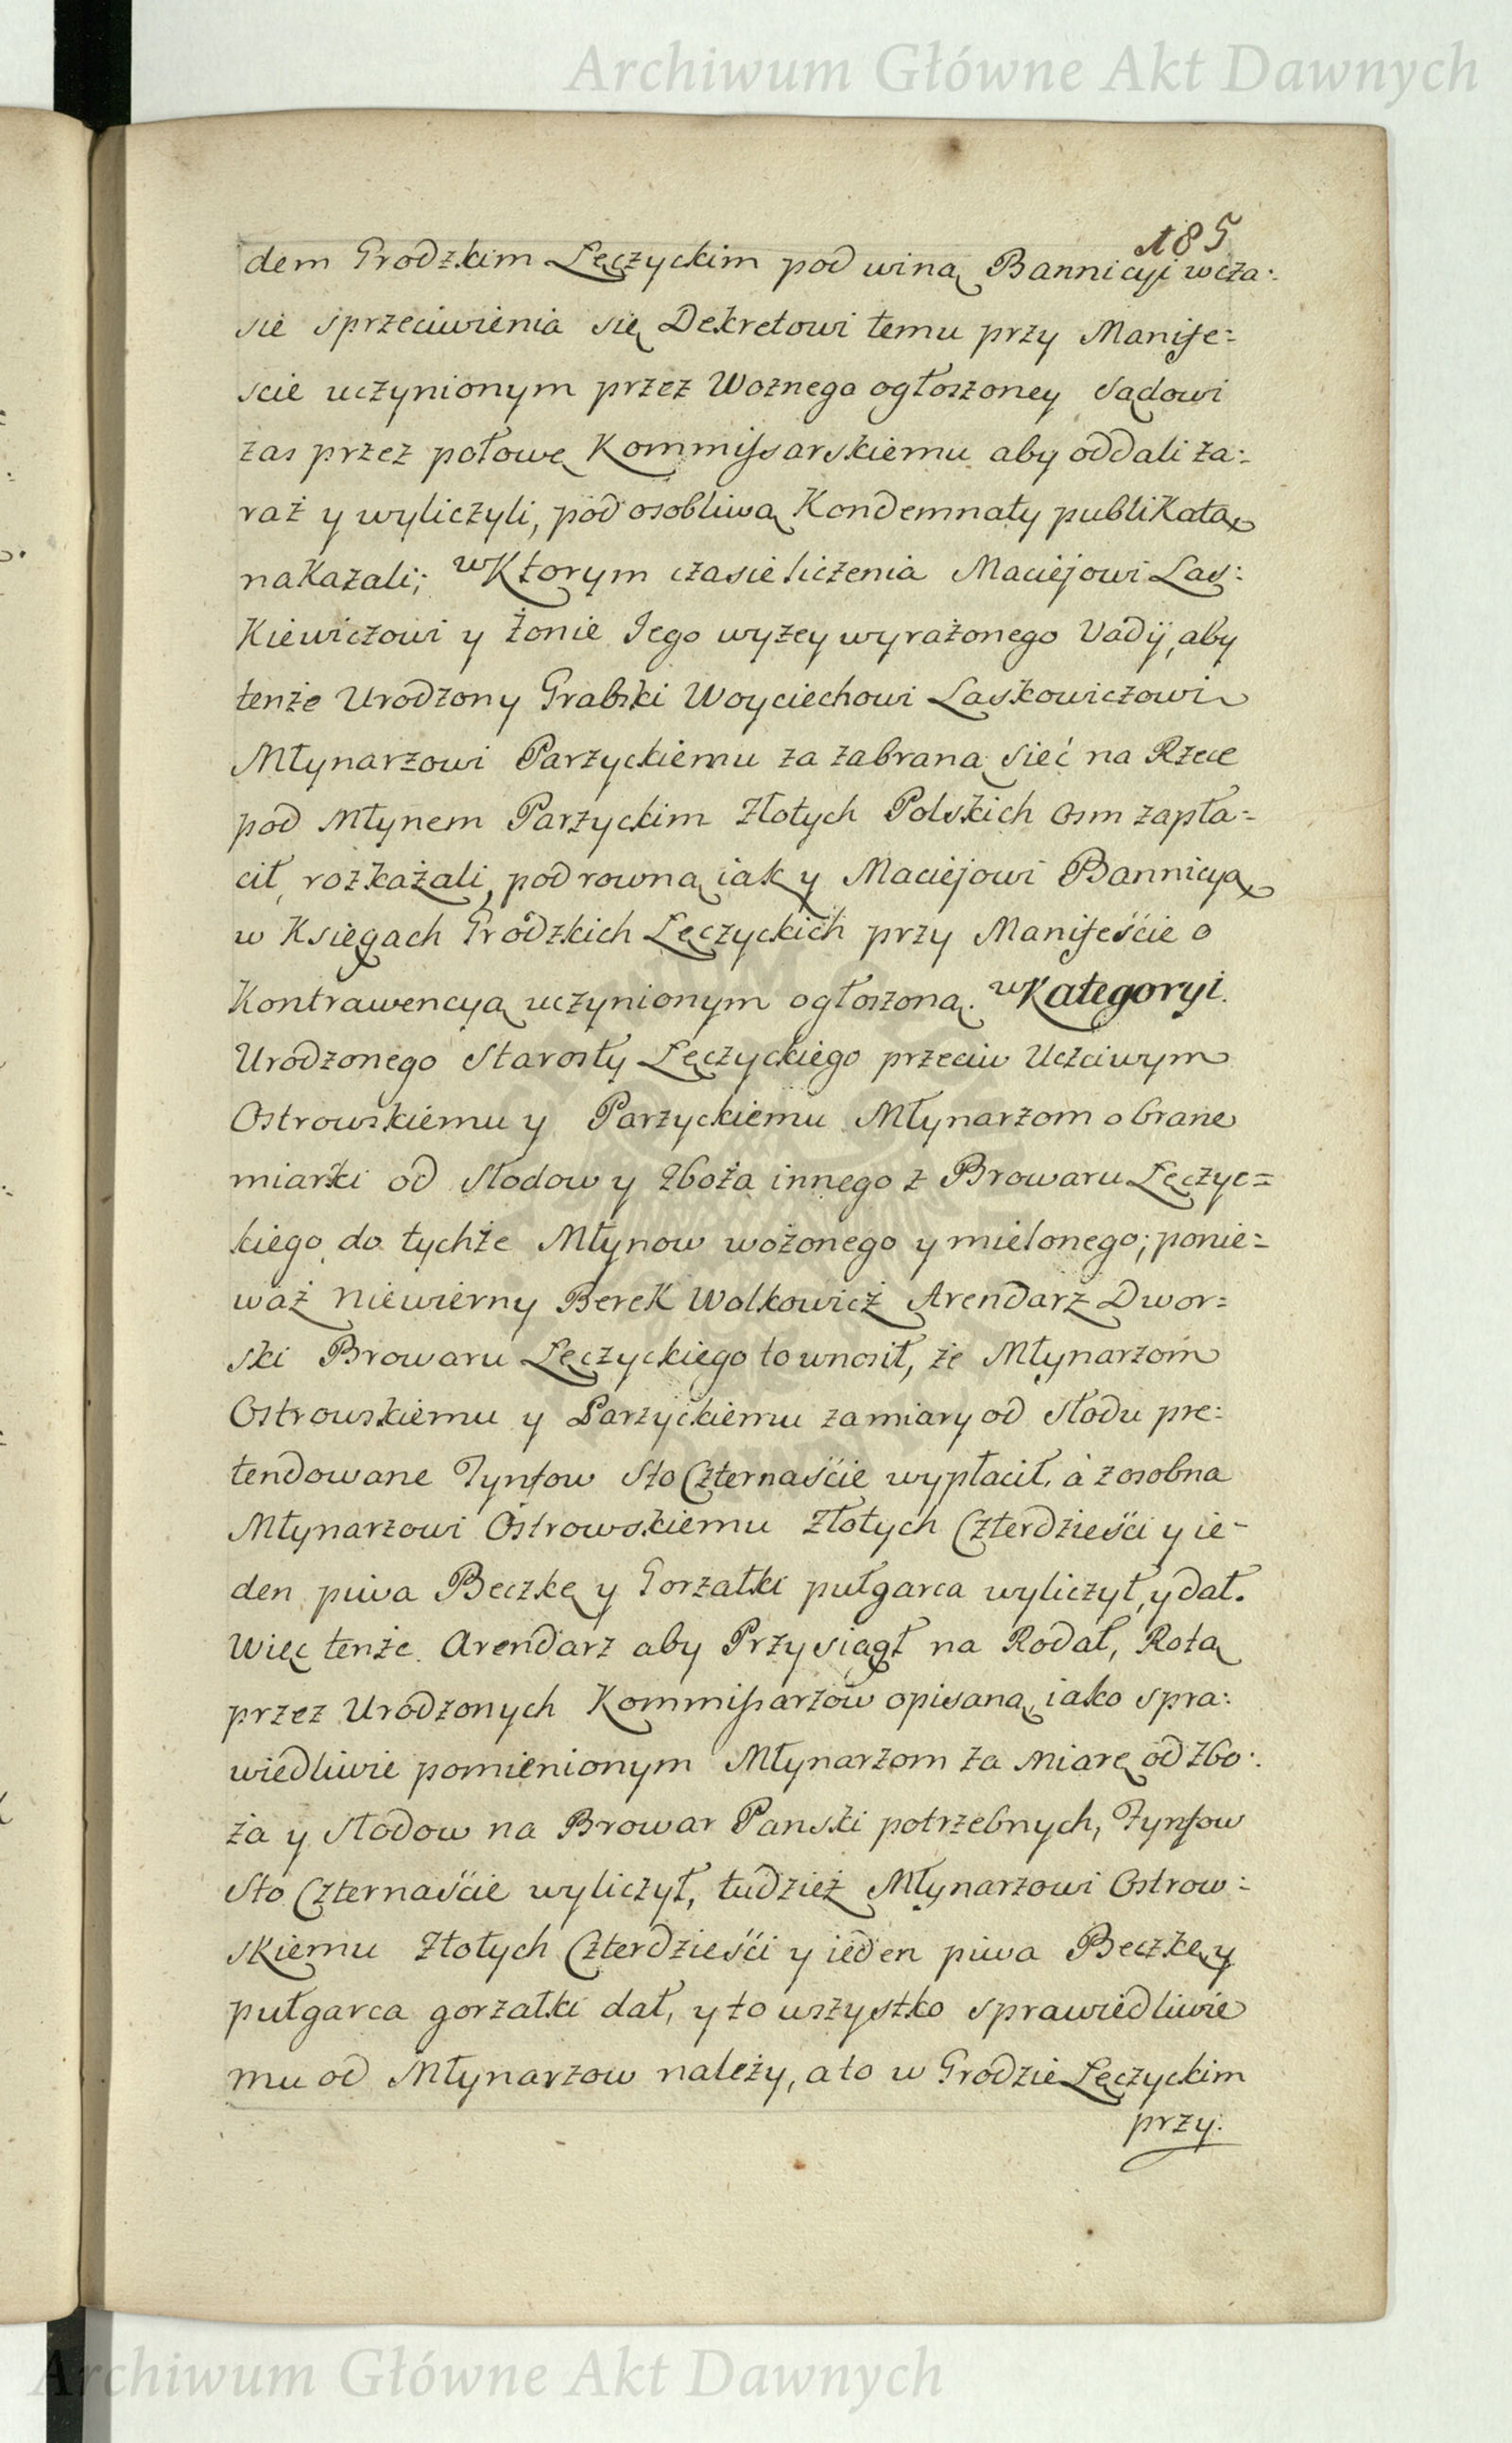 Archiwum Główne Akt Dawnych
185
dem Grodzkim Łęczyckim pod winą Bannicyi w cza:
sie sprzeciwienia się Dekretowi temu przy Manife=
scie uczynionym przez Woznego ogłoszoney Sądowi
zas przez połowę Kommissarskiemu aby oddali za:
raz y wyliczyli, pod osobliwą Kondemnaty publikatą
nakazali; w Ktorym czasie liczenia Maciejowi Las:
Kiewiczowi y Żonie Jego wyzey wyrażonego Vadij, aby
tenże Urodzony Grabski Woyciechowi Laskowiczowi
Młynarzowi Parzyckiemu za zabraną sieć na Rzece
pod Młynem Parzyckim Złotych Polskich osm zapła=
cił, rozkażali, pod rowną iak y Maciejowi Bannicyą
w Księgach Grodzkich Łęczyckich przy Manifeście o
Kontrawencyą uczynionym ogłoszoną. w Kategoryi
Urodzonego Starosty Łęczyckiego przeciw Uczciwym
Ostrowskiemu y Parzyckiemu Młynarzom o brane
miarki od Słodow y zboża innego z Browaru Łęczyc=
kiego do tychże Młynow wożonego y mielonego; ponie=
waż niewierny Berek Wolkowicz Arendarz Dwor=
ski Browaru Łęczyckiego to wnosił, że Młynarzom
Ostrowskiemu y Parzyckiemu za miary od Słodu pre:
tendowane Tynfow Sto Czternaście wypłacił, à z osobna
Młynarzowi Ostrowskiemu Złotych Czterdzieści y ie-
den piwa Beczkę y Gorzałki pułgarca wyliczył, y dał.
Więc tenże Arendarz aby Przysiągł na Rodał, Rotą
przez Urodzonych Kommissarzow opisaną, iako spra:
wiedliwie pomienionym Młynarzom za miarę od zbo:
ża y Słodow na Browar Panski potrzebnych, Tynfow
Sto Czternaście wyliczył, tudzież Młynarzowi Ostrow=
skiemu Złotych Czterdzieści y ieden piwa Beczkę y
pułgarca gorzałki dał, y to wszystko sprawiedliwie
mu od Młynarzow należy, a to w Grodzie Łęczyckim
przy:
Archiwum Główne Akt Dawnych